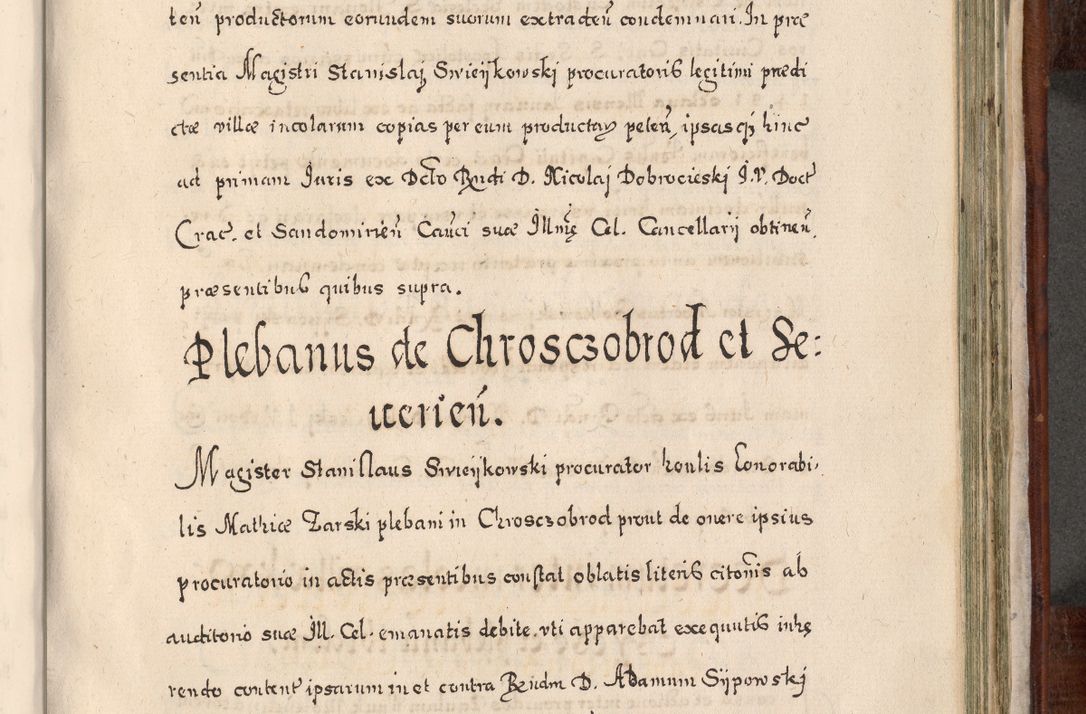 teñ productorum eorundem suorum extradeñ condemnari. In præ
sentia Magistri Stanislaj Swieykowski procuratoris legitimi prædi
ctæ villæ incolarum copias per eum productas peteñ, ipsasq́ hinc
ad primam Juris ex Dcto Rndi D. Nicolaj Dobrocieski J.V. Doct
Crac. et Sandomirieñ Cañci suæ Illmę Cel. Cancellarÿ obtineñ,
præsentibus quibus supra.
Plebanus de Chrosczobrod et Se:
uerieñ.
Magister Stanislaus Swieykowski procurator honlis honorabi,
lis Mathiæ Zarski plebani in Chrosczobrod prout de onere ipsius
procuratorio in actis præsentibus constat oblatis literis citonis ab
auditorio suæ Ill. Cel. emanatis debite vti apparebat exequutis inhę
rendo content ipsarum in et contra Rndm D. Adamum Sypowskj